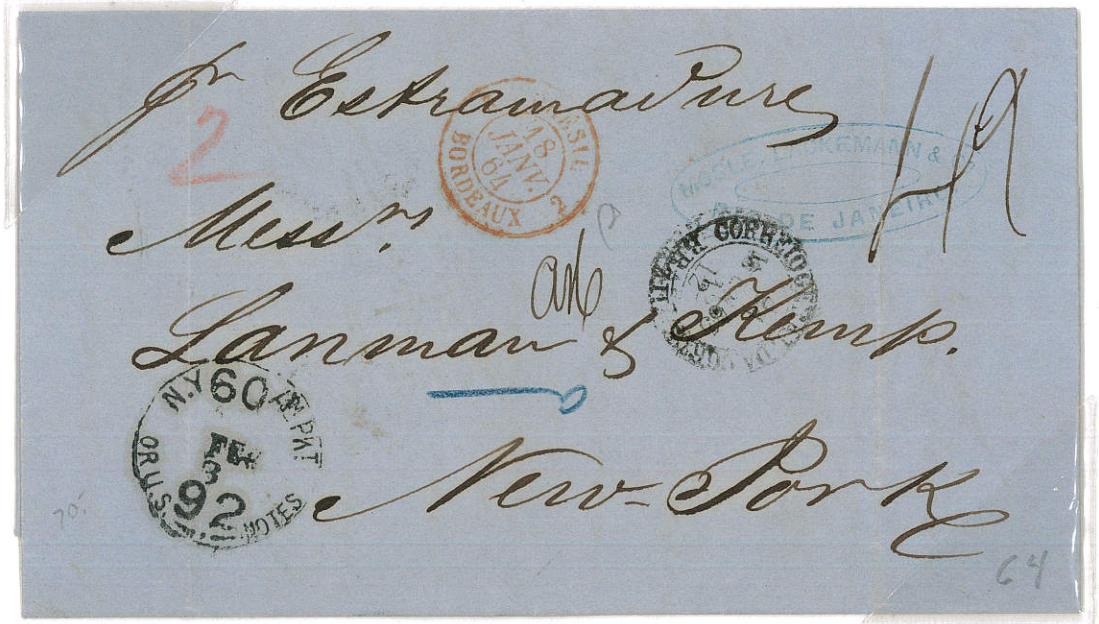 pr Estramadure
2
BRESIL
18
JANV.
64
BORDEAUX 2
MOSLE, LACKEMANN & C
RIO DE JANEIRO
Messrs
CORREIO
Lanman & Kemp.
N.Y. 60 AM PKT
FEB
3
92
OR U.S. NOTES
New-York
70.
64